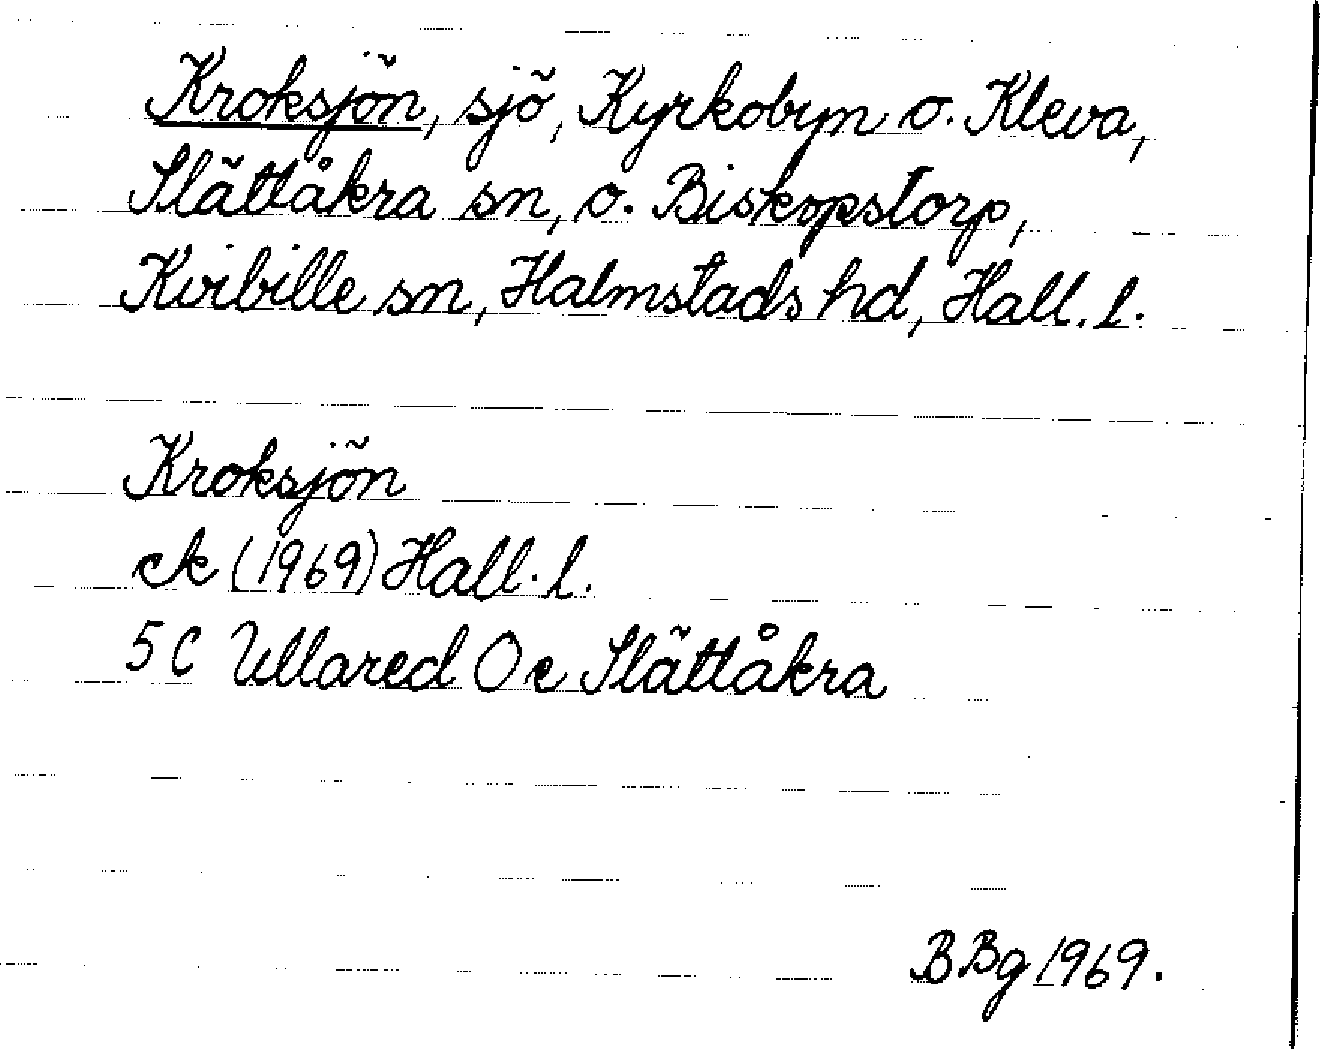 Kroksjön, sjö, Kyrkobyn o. Kleva,
Slättåkra sn, o. Biskopstorp,
Kvibille sn, Halmstads hd, Hall. l.
Kroksjön
ek (1969) Hall. l.
5 C Ullared O e Slättåkra
BBg 1969.